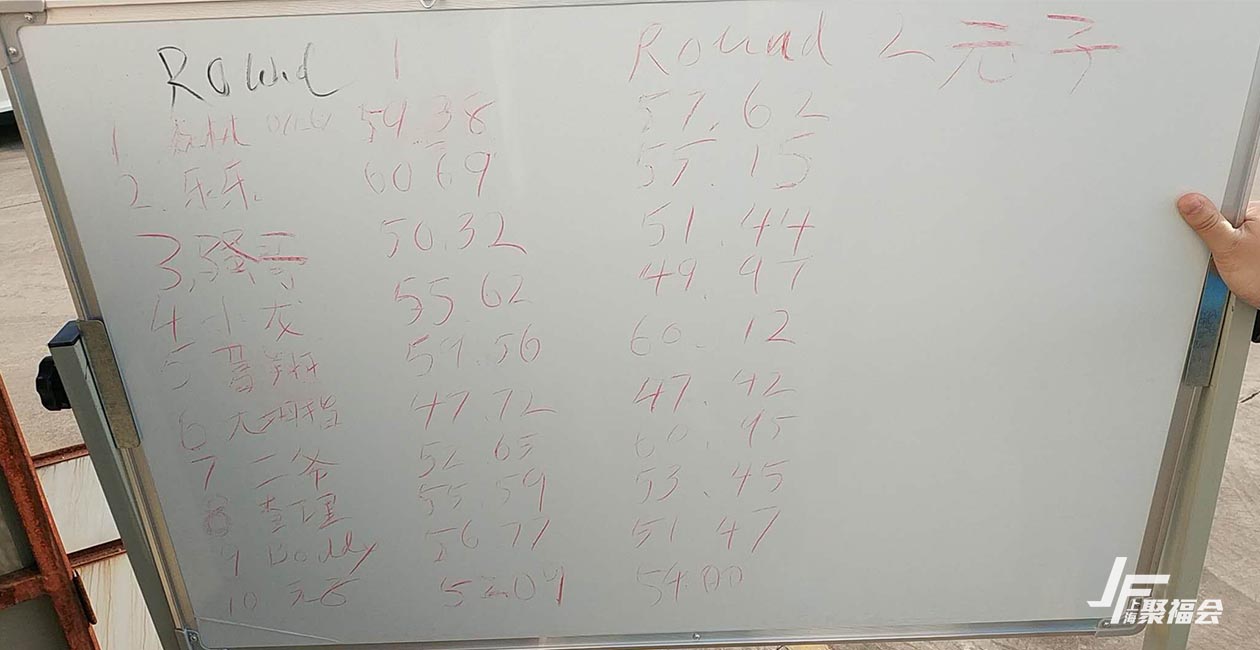 Round 1 Round 2 元子
1. 森林 59.38 57.62
2. 乐乐 60.69 55.15
3. 强哥 50.32 51.44
4 小龙 55.62 49.97
5 晋翔 59.56 60.12
6 47.72 47.42
7 二爷 52.65 60.45
8 查理 55.59 53.45
9 Boddy 56.77 51.47
10 54.00
JF 上海聚福会